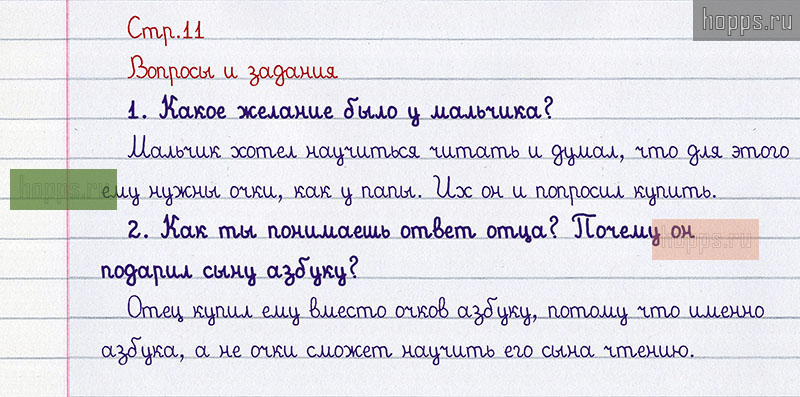 hopps.ru
Стр.11
Вопросы и задания
1. Какое желание было у мальчика?
Мальчик хотел научиться читать и думал, что для этого
hopps.ru
ему нужны очки, как у папы. Их он и попросил купить.
2. Как ты понимаешь ответ отца? Почему он
hopps.ru
подарил сыну азбуку?
Отец купил ему вместо очков азбуку, потому что именно
азбука, а не очки сможет научить его сына чтению.